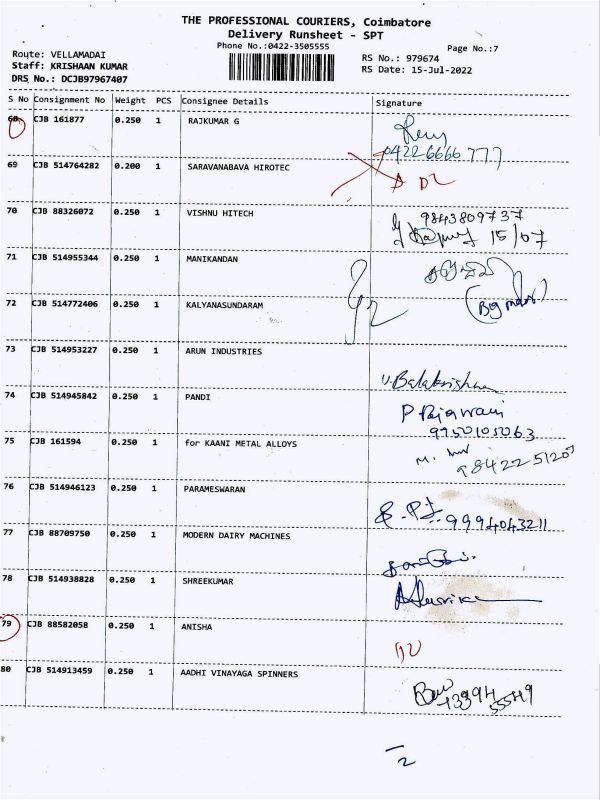 THE PROFESSIONAL COURIERS, Coimbatore
Delivery Runsheet - SPT
Phone No.:0422-3505555
Page No.:7
Route: VELLAMADAI
Staff: KRISHAAN KUMAR
DRS No.: DCJB97967407
RS No.: 979674
RS Date: 15-Jul-2022
S No Consignment No Weight PCS Consignee Details Signature
68 CJB 161877 0.250 1 RAJKUMAR G
04226666777
69 CJB 514764282 0.200 1 SARAVANABAVA HIROTEC
70 CJB 88326072 0.250 1 VISHNU HITECH 9843809737
15/07
71 CJB 514955344 0.250 1 MANIKANDAN
72 CJB 514772406 0.250 1 KALYANASUNDARAM
73 CJB 514953227 0.250 1 ARUN INDUSTRIES
74 CJB 514945842 0.250 1 PANDI
75 CJB 161594 0.250 1 for KAANI METAL ALLOYS
76 CJB 514946123 0.250 1 PARAMESWARAN
9994043211
77 CJB 88709750 0.250 1 MODERN DAIRY MACHINES
78 CJB 514938828 0.250 1 SHREEKUMAR
79 CJB 88582058 0.250 1 ANISHA
80 CJB 514913459 0.250 1 AADHI VINAYAGA SPINNERS
2